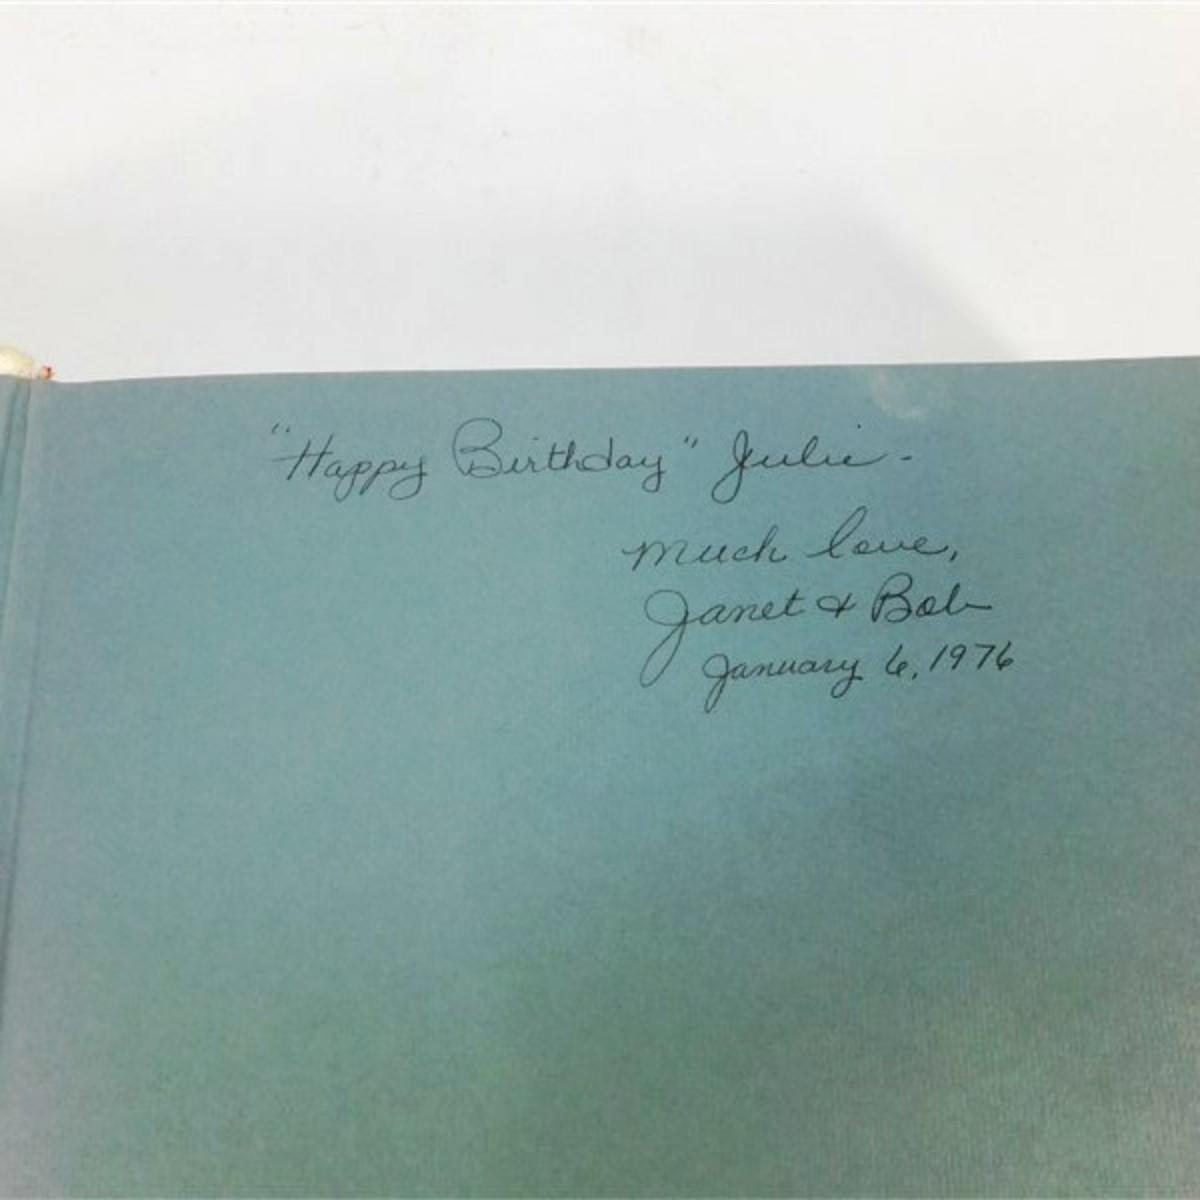 "Happy Birthday" Julie -
Much love,
Janet & Bob
January 6, 1976